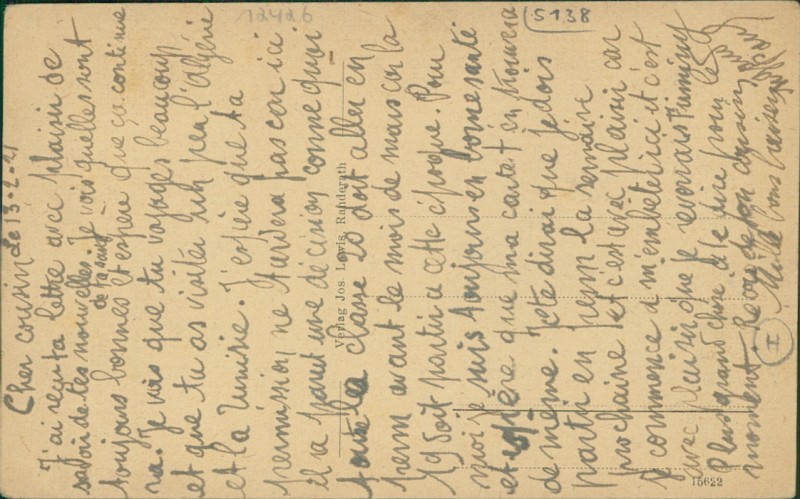 le 13-2-21
Cher cousin
J'ai reçu ta lettre avec plaisir de
savoir de tes nouvelles. Je vois quelles sont
de ta sœur
toujours bonnes et espère que ça continue
ra. Je vois que tu voyages beaucoup
et que tu as visiter un peu l'Algérie
et la Tunisie. J'espère que ta
permission ne tardera pas con ici
il a parut une décision comme quoi
toute la classe 20 doit aller en
perm avant le mois de mars car la
19 soit partir a cette époque. Pour
moi je suis toujours en bonne santé
et espère que ma carte t'en trouvera
de même. Je te dirai que je dois
partir en perm la semaine
prochaine et c'est avec plaisir car
je commence a m'embêter ici et c'est
avec plaisir que je reverrais
Plus grand chose à te dire pour le
moment. ton cousin
Mille bons baisers
I
12426
5138
Verlag Jos. Lewis, Randerath
15622